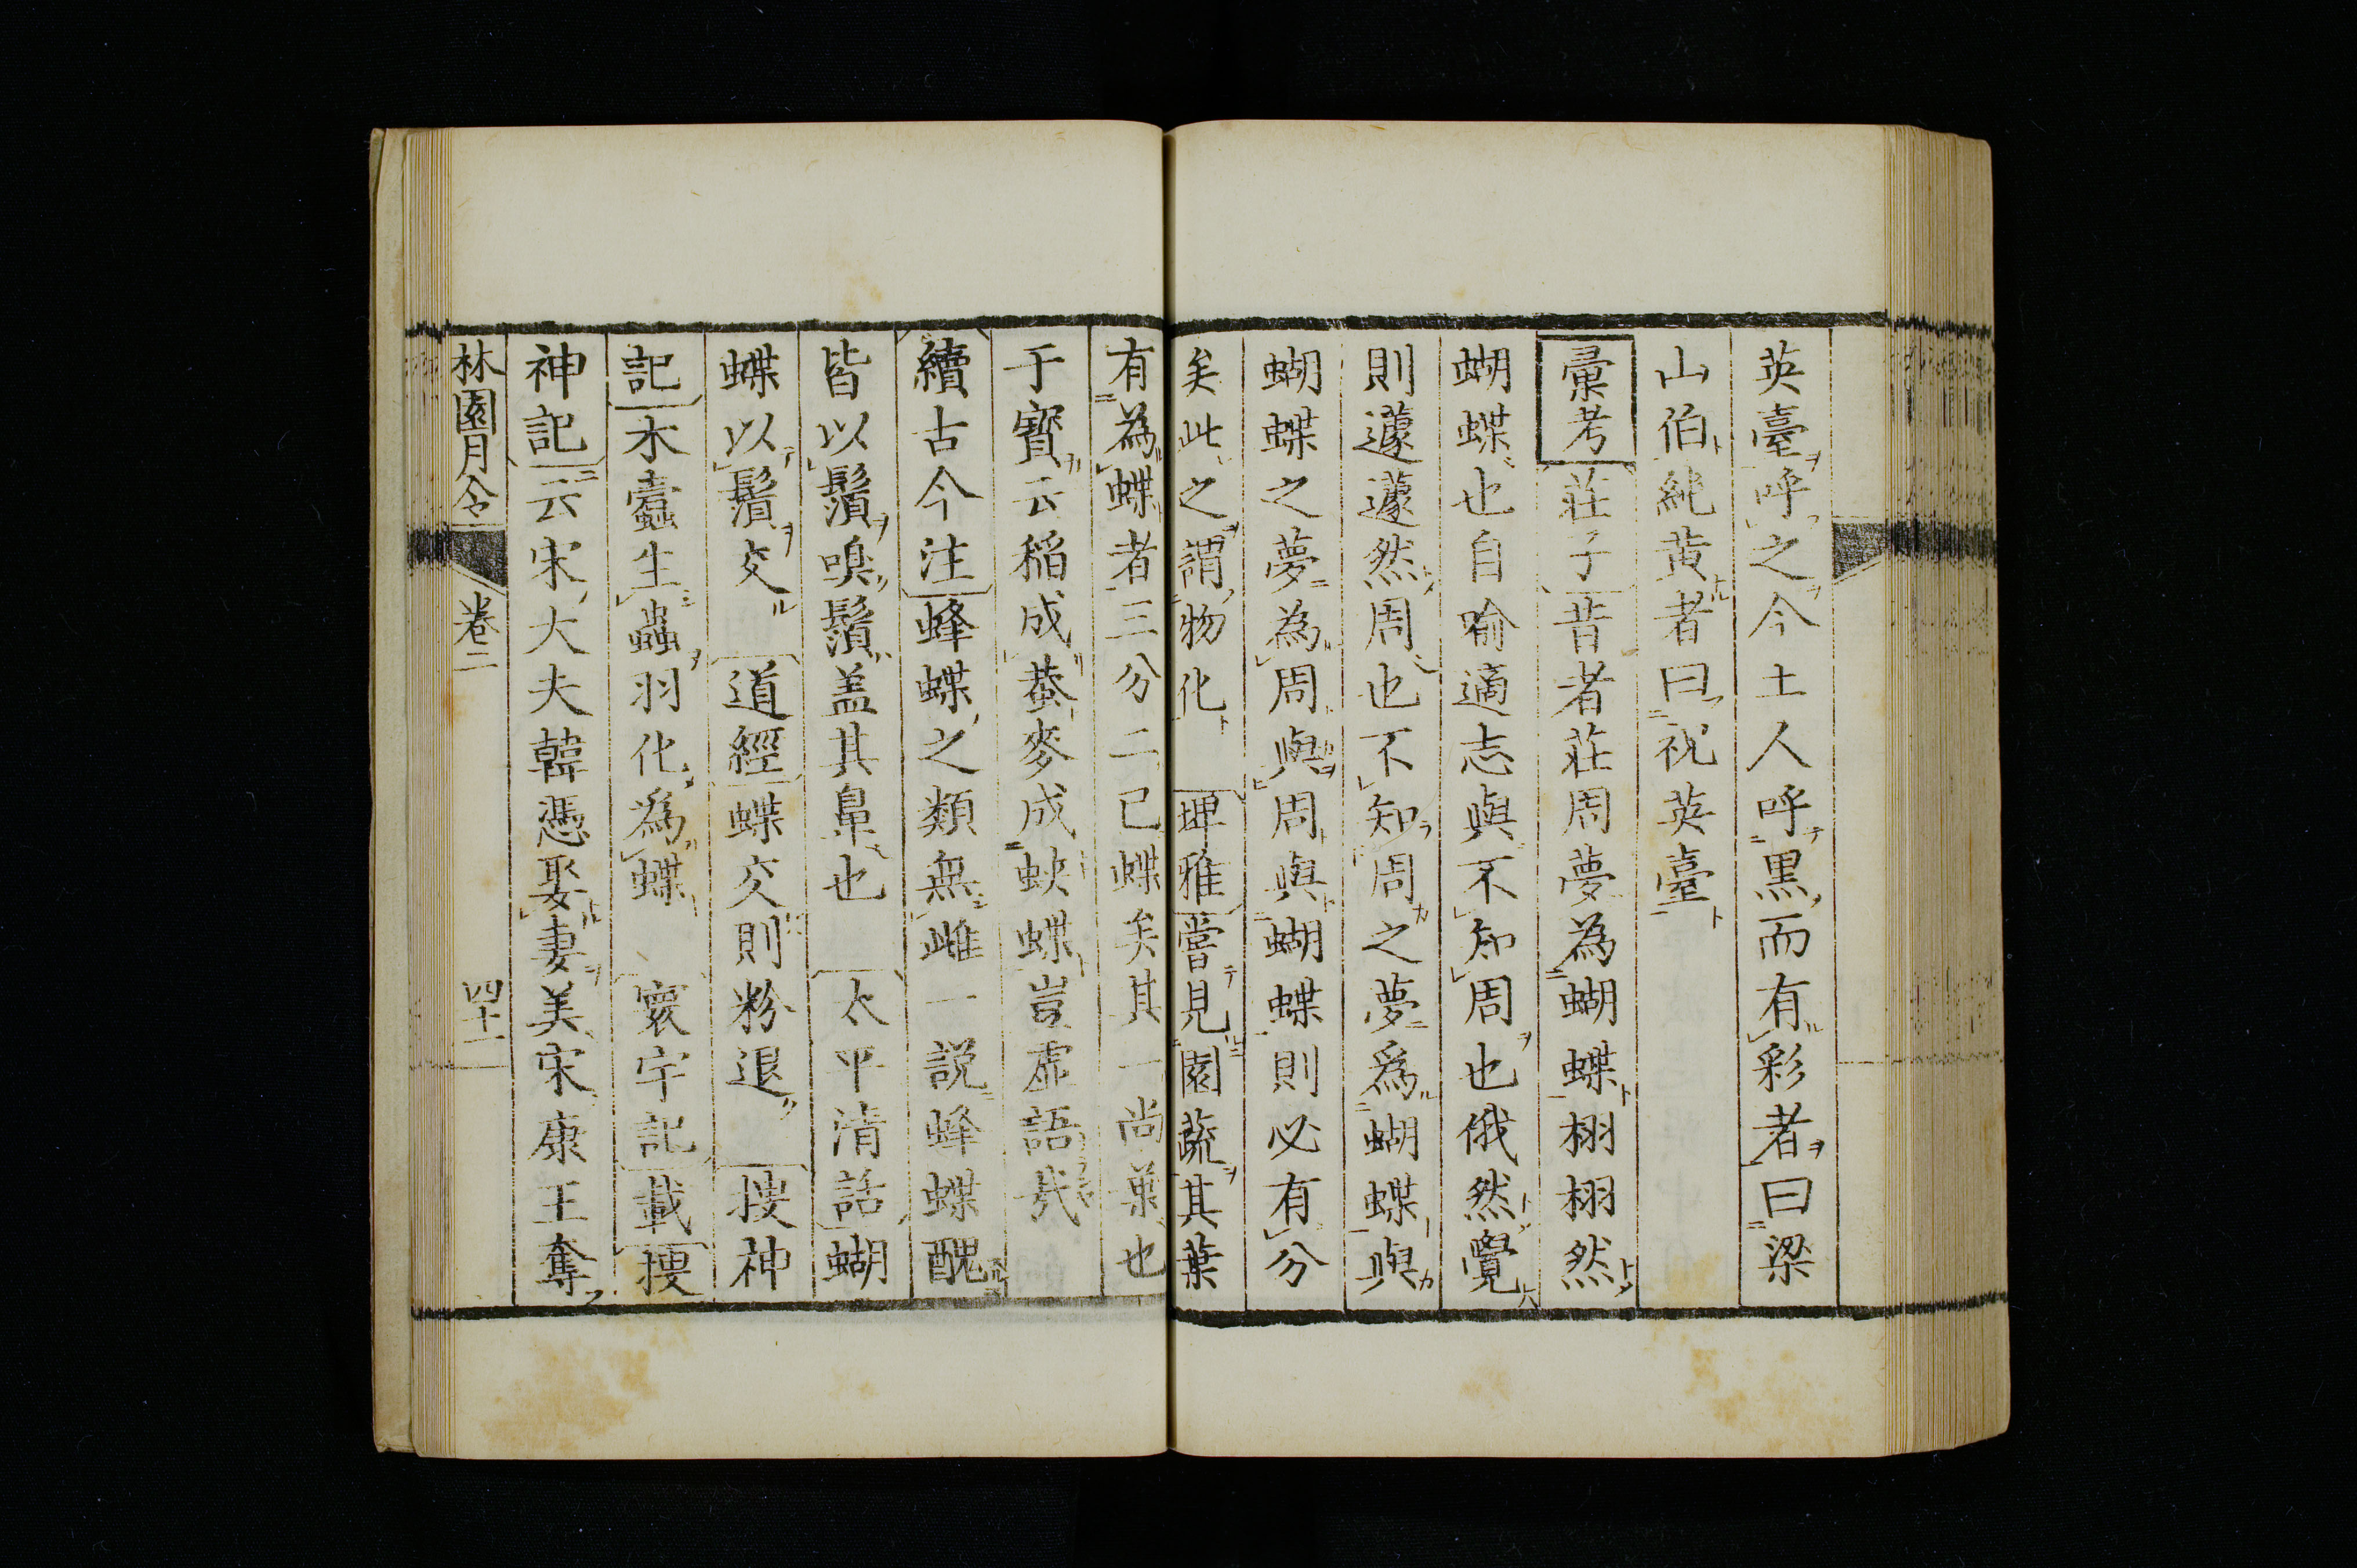 英臺呼之今土人呼黒而有彩者曰梁
山伯純黄者曰祝英臺
彙考莊子昔者莊周夢為蝴蝶栩栩然
蝴蝶也自喻適志與不知周也俄然覺
則蘧蘧然周也不知周之夢爲蝴蝶與
蝴蝶之夢為周與周與蝴蝶則必有分
矣此之謂物化 埤雅嘗見園蔬其葉
有為蝶者三分二已蝶矣其一尚葉也
于寳云稲成蛬麥成蛱蝶豈虚語哉
續古今注蜂蝶之類無雌一説蜂蝶醜
皆以鬚嗅鬚盖其鼻也 太平清話蝴
蝶以鬚交 道經蝶交則粉退 搜神
記木蠹生蟲羽化為蝶 寰宇記載搜
神記云宋大夫韓憑娶妻美宋康王奪
林園月令 卷二 四十二